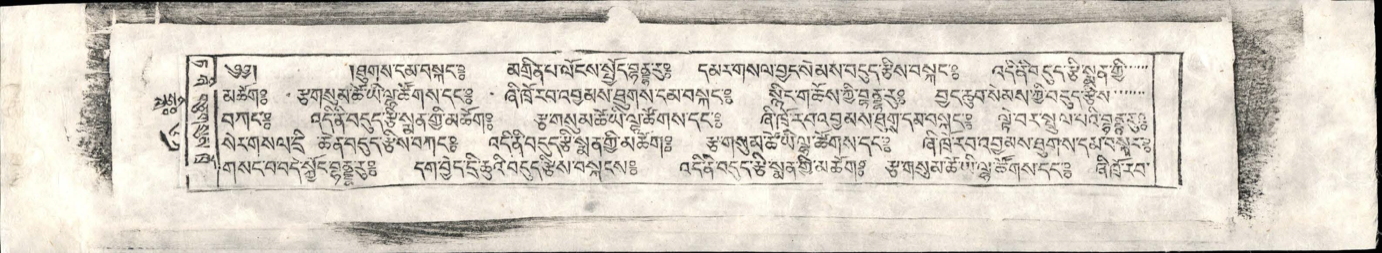 ༄༅། །ཐུགས་དམ་བསྐང༔ མགྲིན་པ་ལོངས་སྤྱོད་བྷནྡྷ་རུ༔ དམར་གསལ་བྱང་སེམས་བདུད་རྩིས་བསྐང༔ འདི་ནི་བདུད་རྩི་སྨན་གྱི་
མཆོག༔ རྩ་གསུམ་ཆོས་ཡི་ལྷ་ཚོགས་དང༔ ཞི་ཁྲོ་རབ་འབྱམས་ཐུགས་དམ་བསྐང༔ སྙིང་ག་ཆོས་ཀྱི་བྷནྡྷ་རུ༔ བྱང་ཆུབ་སེམས་ཀྱི་བདུད་རྩིས་
བཀང༔ འདི་ནི་བདུད་རྩི་སྨན་གྱི་མཆོག༔ རྩ་གསུམ་ཆོས་ཡི་ལྷ་ཚོགས་དང༔ ཞི་ཁྲོ་རབ་འབྱམས་ཐུགས་དམ་བསྐང༔ ལྟེ་བར་སྤྲུལ་པའི་བྷནྡྷ་རུ༔
སེར་གསལ་དྲི་ཆེན་བདུད་རྩིས་བཀང༔ འདི་ནི་བདུད་རྩི་སྨན་གྱི་མཆོག༔ རྩ་གསུམ་ཆོས་ཡི་ལྷ་ཚོགས་དང༔ ཞི་ཁྲོ་རབ་འབྱམས་ཐུགས་དམ་བསྐང༔
གསང་བ་བདེ་སྤྱོད་བྷནྡྷ་རུ༔ དག་བྱེད་དྲི་ཆུའི་བདུད་རྩིས་བསྐངས༔ འདི་ནི་བདུད་རྩི་སྨན་གྱི་མཆོག༔ རྩ་གསུམ་ཆོས་ཡི་ལྷ་ཚོགས་དང༔ ཞི་ཁྲོ་རབ་